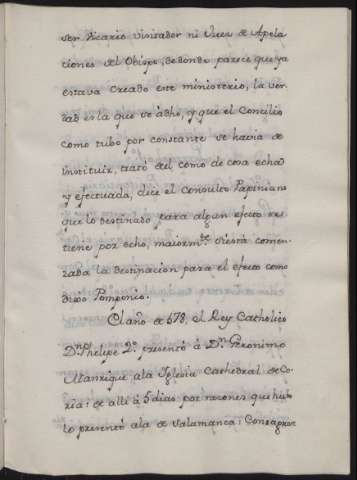 ser Vicario visitador ni Juez de Apela
ciones del Obispo, de donde parece que ya
estava creado este ministerio, la ver
dad es la que se á dho, y que el Concilio
como tubo por constante se havia de
instituir, trató del como de cosa echa
y efectuada, dice el Consulto Papiniano
que lo destinado para algun efecto se
tiene por echo, maiorm.te si está comen
zada la destinacion para el efecto como
dixo Pomponio.
El año de 578, el Rey Catholico
D.n Phelipe 2.º presentó á D.n Geronimo
Manrique ala Iglesia Cathedral de Co
ria: de alli á 5 dias por razones que hu
lo presentó ala de Salamanca: Consagrose